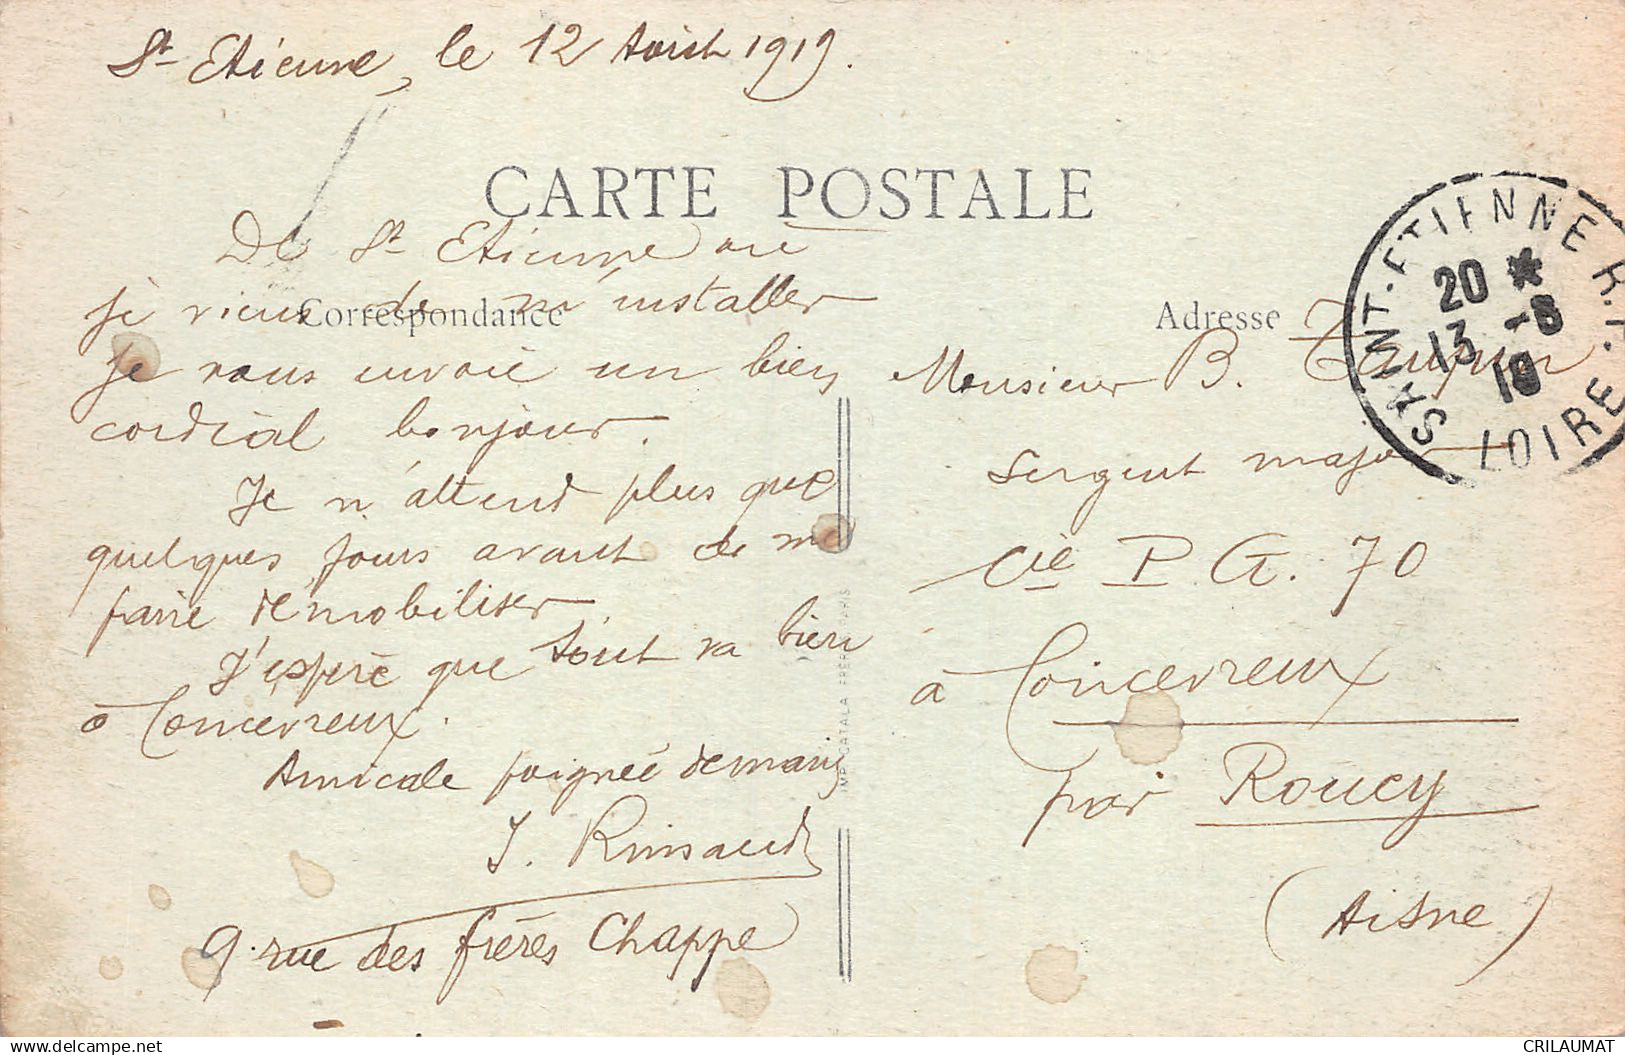 St Etienne, le 12 Août 1919.
CARTE POSTALE
Correspondance
De St Etienne où
je viens de m'installer
je vous envoie un bien
cordial bonjour.
Je n'attend plus que
quelques jours avant de me
faire démobiliser
J'espère que tout va bien
à Concevreux.
Amicale poignée de main
J. Rimaud
9 rue des frères Chappe
IMP. CATALA FRÈRES PARIS
Adresse
Monsieur B.
Sergent major
Cie P. G. 70
à Concevreux
par Roucy
(Aisne)
SAINT-ETIENNE R.P.
20 *
13 -8
19
LOIRE
delcampe.net
CRILAUMAT